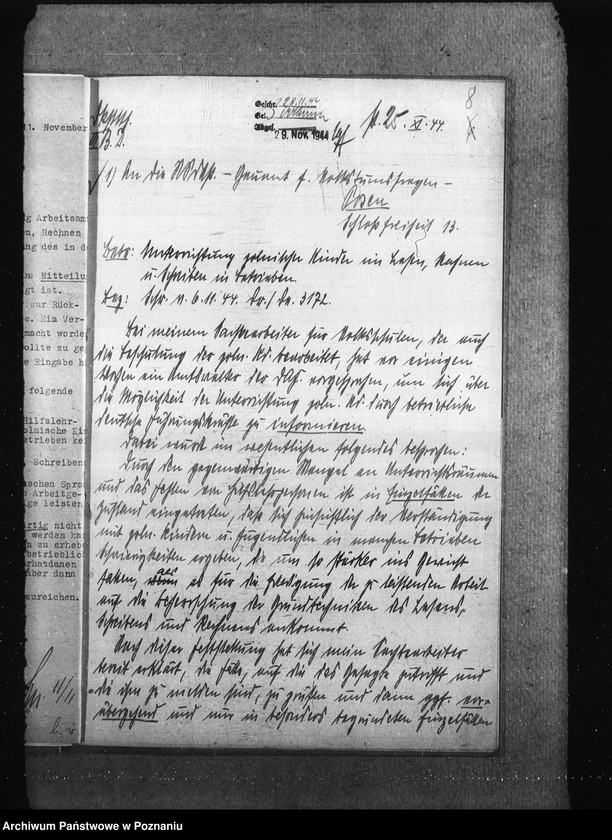 11. November
g Arbeitsam
en, Rechnen
ng des in d
Mitteilu
gt ist.
zur Rück-
e. Ein Ver-
macht worde
ollte zu ge
e Eingabe h
folgende
Hilfslehr-
olnische Ki
etrieben ke
Schreiben
schen Spra
Arbeitge-
ge leisten
rtig nicht
werden ka
zu erheb
betrieblic
rhandenen
ber dann
zureichen.
8
Geschr. 28.11.44
Gel.
Abges. 29. Nov. 1944
P. 25. XI. 44.
III B. 2.
1) An die NSDAP. – Gauamt f. Volkstumsfragen –
Posen
Schloßfreiheit 13.
Betr: Unterrichtung polnischer Kinder im Lesen, Rechnen
u. Schreiben in Betrieben.
Bez: Schr. v. 6.11.44. Dr./Da. 3172.
Bei meinem Sachbearbeiter für Volksschulen, der auch
die Beschulung der poln. Kd. bearbeitet, hat vor einigen
Wochen ein Amtswalter der DAF. vorgesprochen, um sich über
die Möglichkeit der Unterrichtung poln. Kd. durch betriebliche
deutsche Führungskräfte zu informieren.
Dabei wurde im wesentlichen folgendes besprochen:
Durch den gegenwärtigen Mangel an Unterrichtsräumen
und das Fehlen von Hilfslehrpersonen ist in Einzelfällen der
Zustand eingetreten, daß sich hinsichtlich der Verständigung
mit poln. Kindern u. Jugendlichen in manchen Betrieben
Schwierigkeiten ergeben, die um so stärker ins Gewicht
fallen, als es für die Erledigung der zu leistenden Arbeit
auf die Beherrschung der Grundtechniken des Lesens,
Schreibens und Rechnens ankommt.
Nach dieser Feststellung hat sich mein Sachbearbeiter
bereit erklärt, die Fälle, auf die das Gesagte zutrifft und
die ihm zu melden sind, zu prüfen und dann ggf. vor-
übergehend und nur in besonders begründeten Einzelfällen
Archiwum Państwowe w Poznaniu